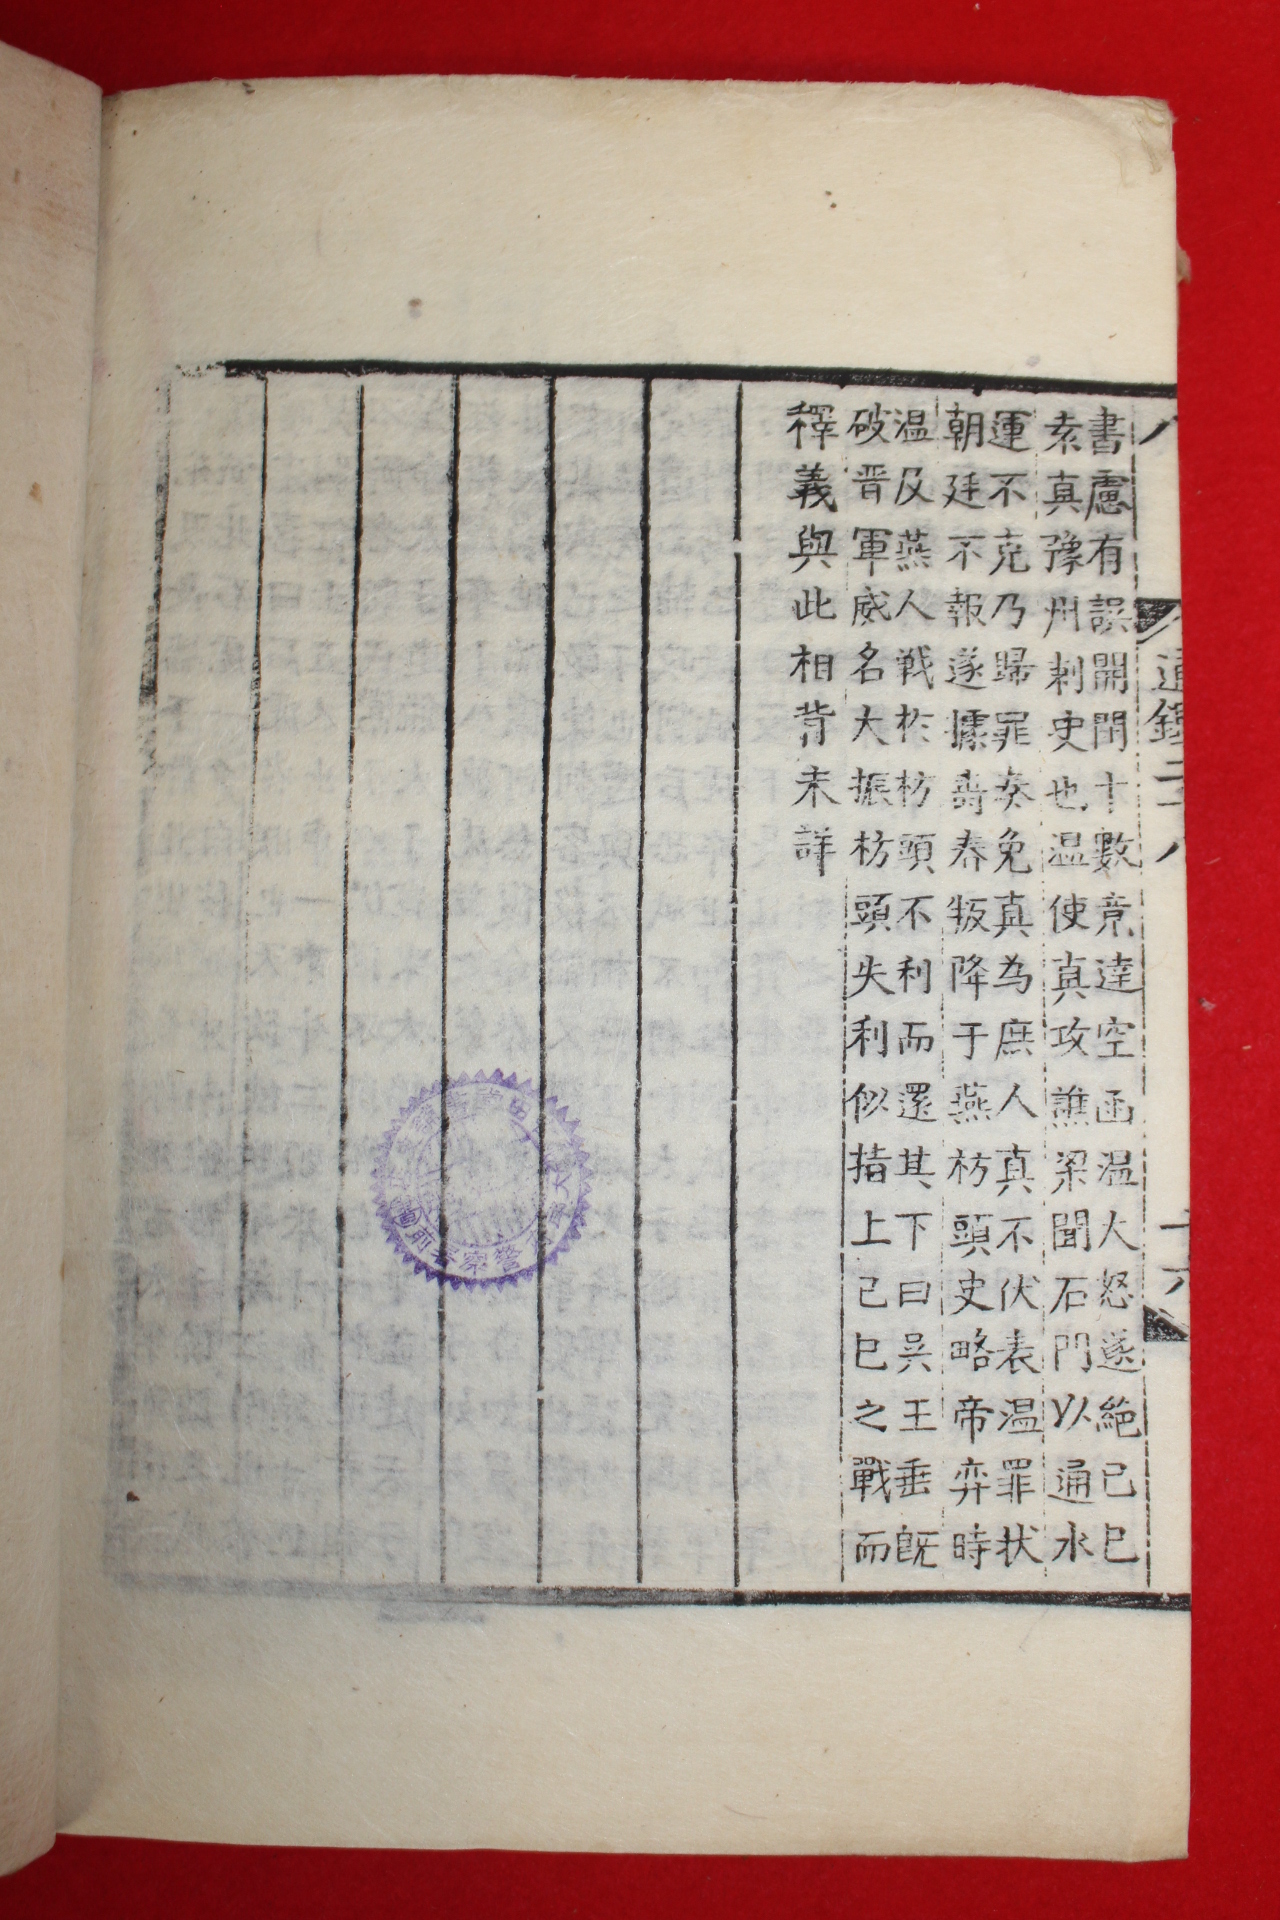 書慮有誤開閉十數竟達空函温大怒遂絶已巳
素真豫州刺史也温使真攻譙梁聞石門以通水
運不克乃歸罪奏免真為庶人真不伏表温罪状
朝廷不報遂據壽春叛降于燕枋頭史略帝弈時
温及燕人戦於枋頭不利而還其下曰吴王垂既
破晋軍威名大振枋頭失利似指上己巳之戰而
釋義與此相背未詳
通鑑二十八
十六